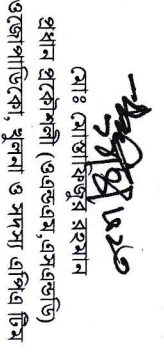 মোঃ মোস্তাফিজুর রহমান
প্রধান প্রকৌশলী (ওএন্ডএম,এসএন্ডডি)
ওজোপাডিকো, খুলনা ও সদস্য এপিএ টিম